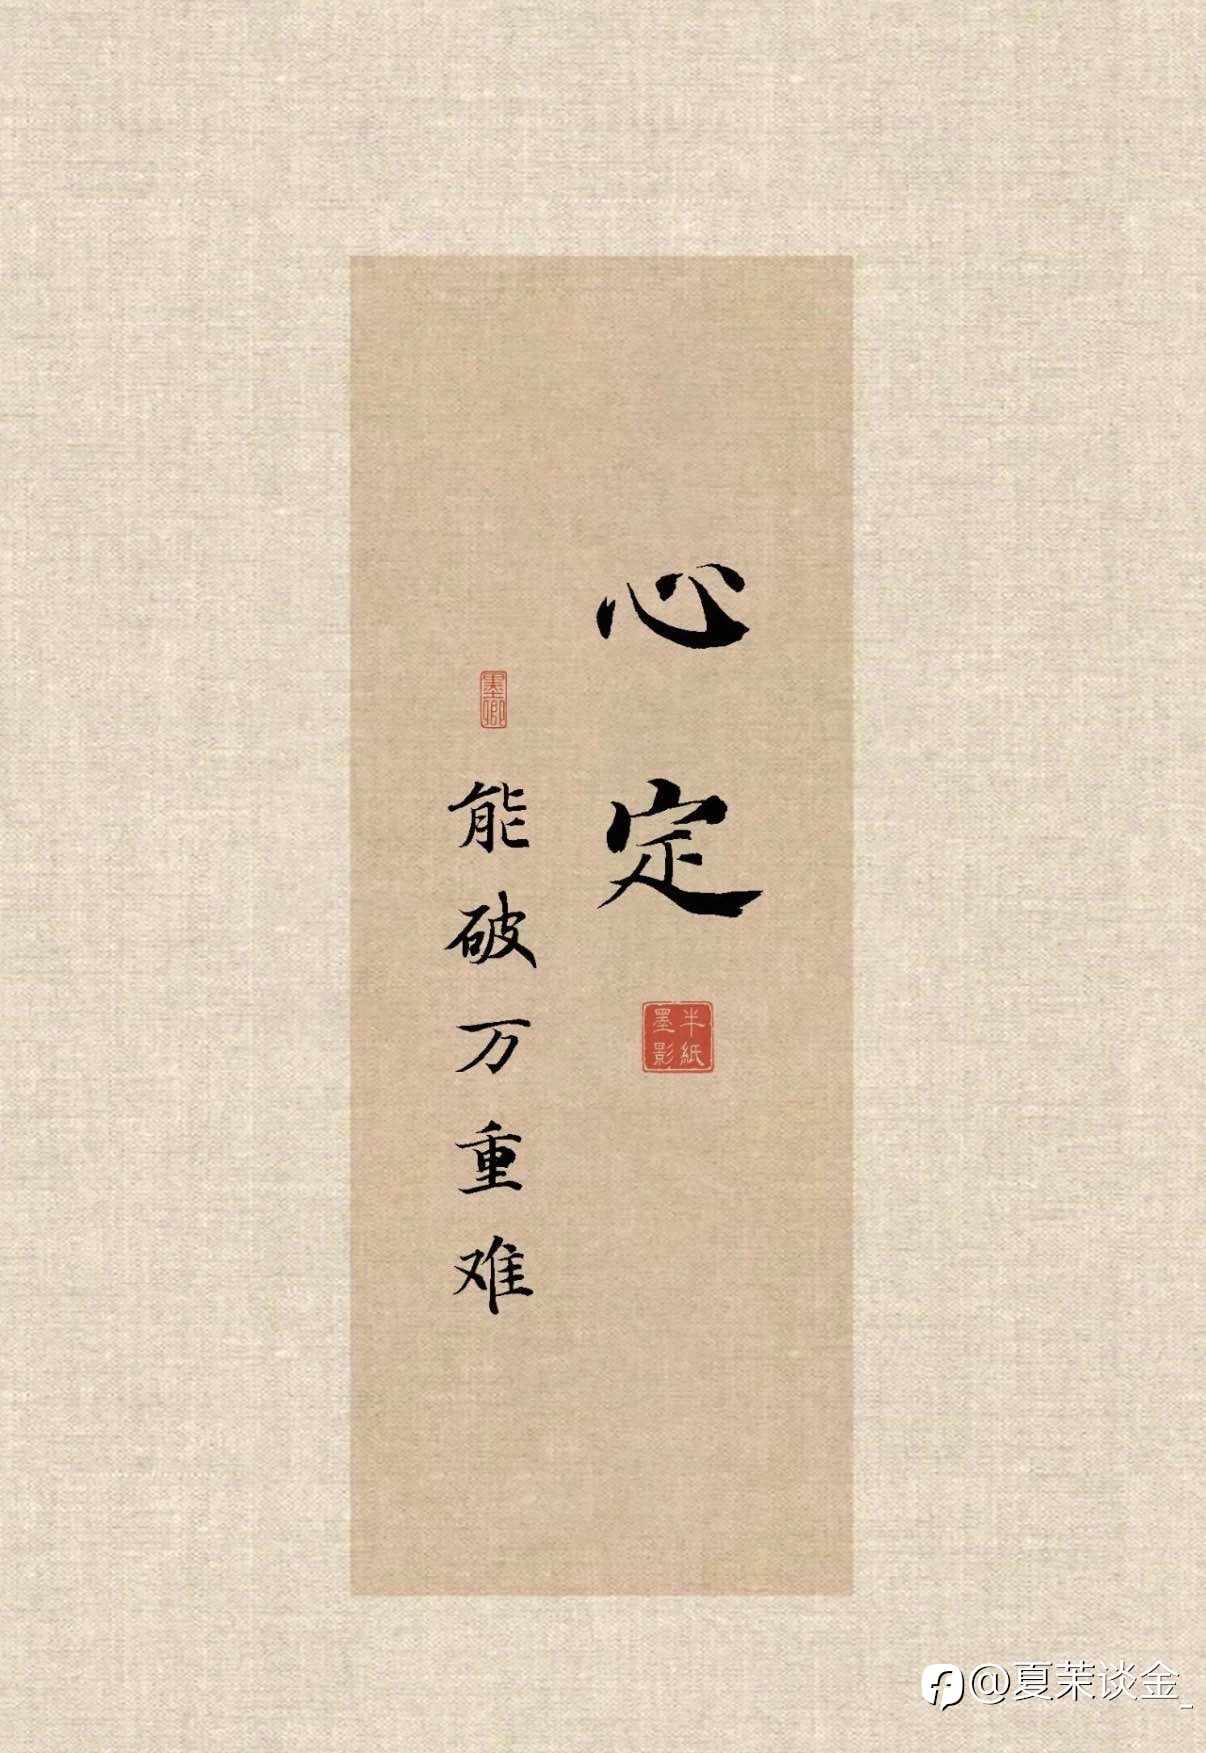 心定
半紙墨影
墨卿
能破万重难
@夏茉谈金_